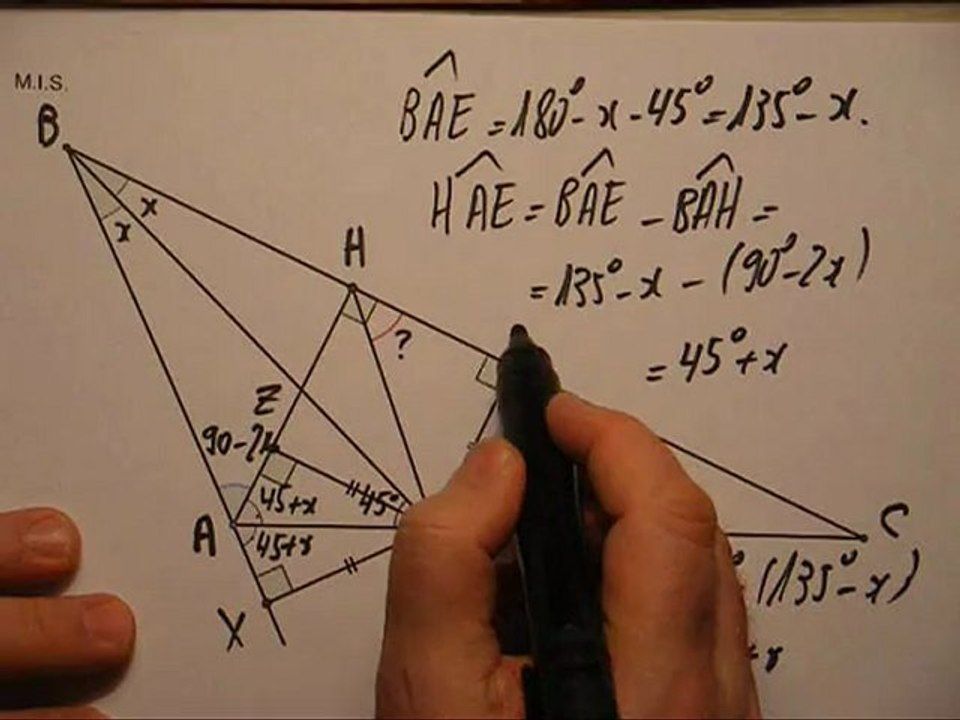 M.I.S.
BAE = 180° - x - 45° = 135° - x.
HAE = BAE - BAH =
= 135° - x - (90° - 2x)
= 45° + x
B
x
x
H
?
Z
90-2x
45+x
45°
A
45+x
C
(135° - x)
X
+x